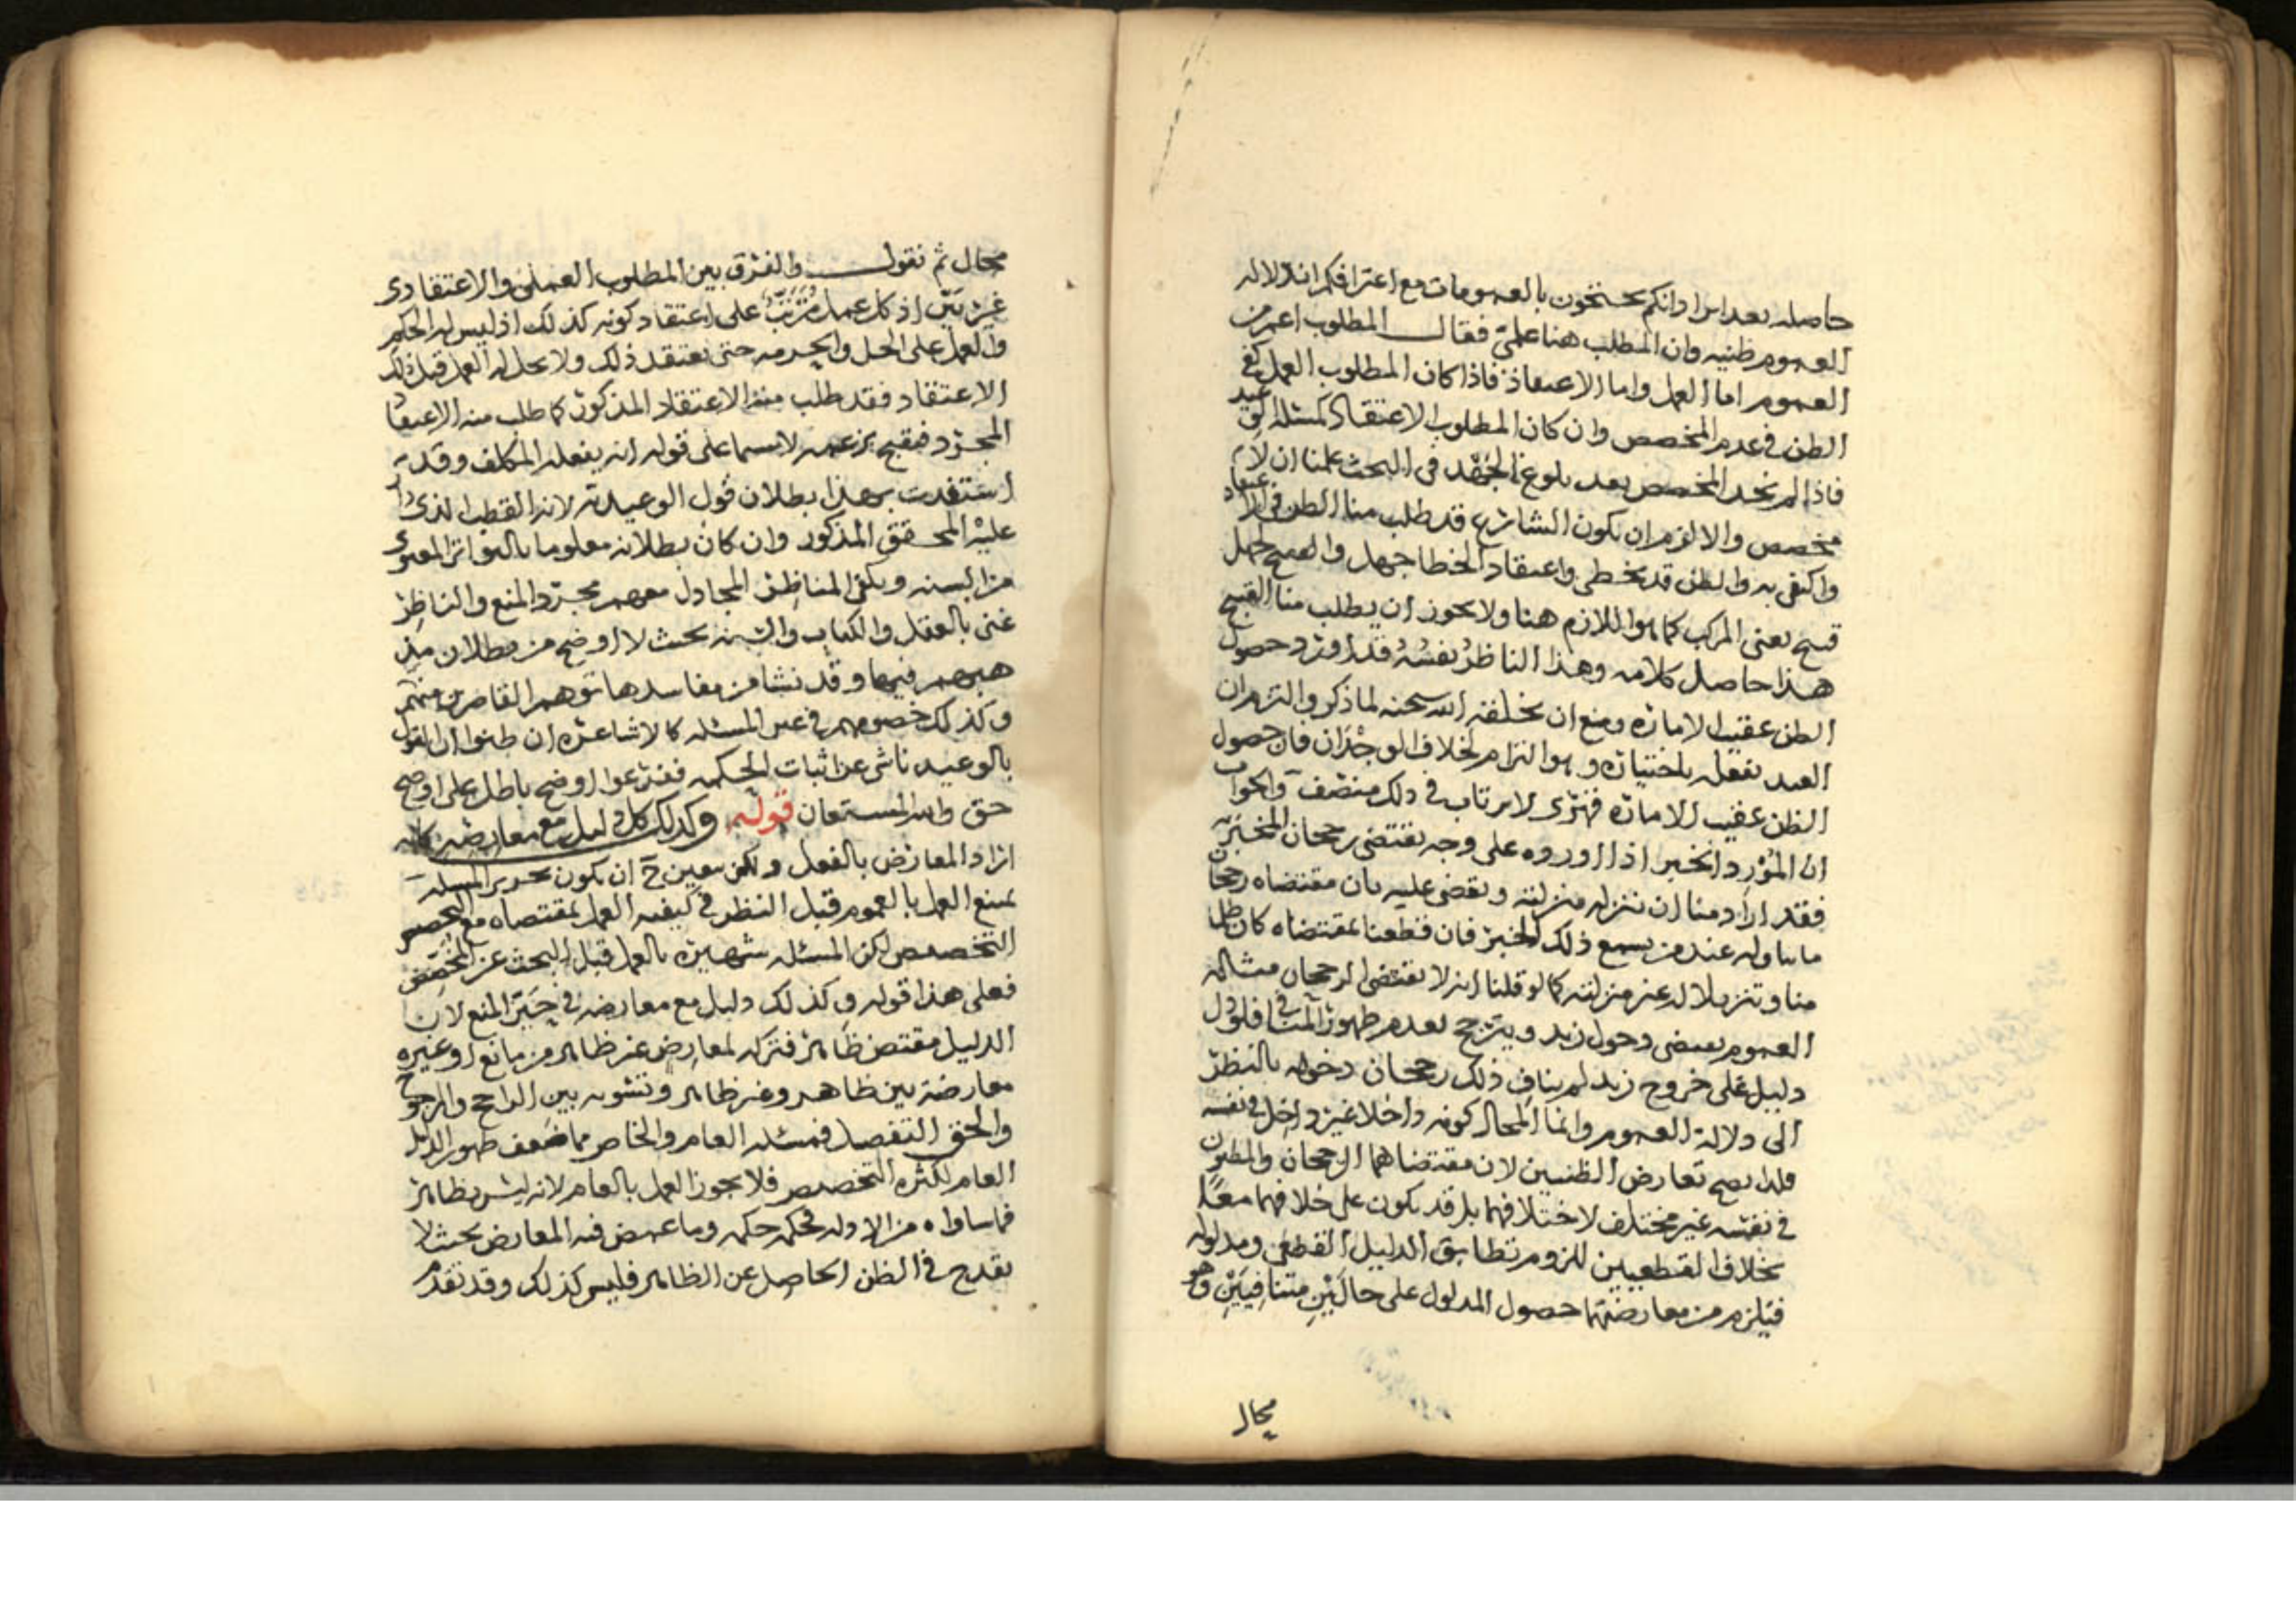 حاصله بعد ايرادانكم تحتجون بالعمومات مع اعترافكم ان دلاله
العموم ظنيه وان المطلب هنا علمي فقال المطلوب اعم من
العموم اما العمل واما الاعتقاد فاذا كان المطلوب العمل كفى
الظن في عدم المخصص وان كان المطلوب الاعتقاد كمسئله الوعيد
فاذا لم نجد المخصص بعد بلوغ الجهد في البحث علمنا ان لا
مخصص والا لزم ان يكون الشارع قد طلب منا الظن في الاعتقاد
واكتفى به والظن قد يخطي واعتقاد الخطا جهل والقبيح الجهل
قبيح يعني المركب كما هو اللازم هنا ولا يجوز ان يطلب منا القبيح
هذا حاصل كلامه وهذا الناظر نفسه قد اورد حصول
الظن عقيب الاماره ومنع ان يخلقه الله سبحنه لما ذكر والتزم ان
العبد يفعله باختياره وهو التزام لخلاف الوجدان فان حصول
الظن عقيب الاماره ضروري لا يرتاب في ذلك منصف والجواب
ان المورد الخبر اذا اورده على وجه يقتضي رجحان المخبر به
فقد اراد منا ان ننزله منزلته ونقضي عليه بان مقتضاه رجحان
ما تناوله عند من يسمع ذلك الخبر فان قطعنا بمقتضاه كان ظلما
منا وتنزيلا له عن منزلته كما لو قلنا انه لا يقتضي الرجحان مثاله
العموم يقتضي دخول زيد ويترجح بعدم ظهور المنافي فلو دل
دليل على خروج زيد لم يناف ذلك رجحان دخوله بالنظر
الى دلالة العموم وانما المحال كونه داخلا غير داخل في نفسه
فلذا يصح تعارض الظنيين لان مقتضاهما الرجحان والمظنون
في نفسه غير مختلف لاختلافهما بل قد يكون على خلافهما معا
بخلاف القطعيين للزوم تطابق الدليل القطعي ومدلوله
فيلزم من معارضتهما حصول المدلول على حالين متنافيين وهو
محال
محال ثم نقول والفرق بين المطلوب العملي والاعتقادي
غير بين اذ كل عمل مترتب على اعتقاد كونه كذلك اذ ليس له الحكم
والعمل على الحل والحرمه حتى يعتقد ذلك ولا يحل له العمل قبل ذلك
الاعتقاد فقد طلب منه الاعتقاد المذكور كما طلب منه الاعتقاد
المجرد فيقبح بزعمه لا سيما على قوله انه يفعله المكلف وقد
استفدت بهذا بطلان قول الوعيديه لانه القطب الذي دار
عليه المحقق المذكور وان كان بطلانه معلوما بالتواتر المعنوي
من السنه ويكفي المناظر المجادل معهم مجرد المنع والناظر
غني بالعقل والكتاب والسنه بحيث لا اوضح من بطلان مذ
هبهم فيها وقد نشا من مفاسدها توهم القاصرين منهم
وكذلك خصومهم في غير المسئله كالاشاعره ان ظنوا ان القول
بالوعيد ناشي عن اثبات الحكمه ففرعوا اوضح باطل على اوضح
حق والله المستعان قوله وكذلك كل دليل مع معارضه كانه
اراد المعارض بالفعل ولكن يتعين ح ان يكون تحرير المسئله
يمنع العمل بالعموم قبل النظر في كيفيه العمل بمقتضاه مع
التخصيص لكن المسئله شهيره بالعمل قبل البحث عن المخصص
فعلى هذا قوله وكذلك دليل مع معارضه في حيز المنع لان
الدليل مقتض ظاهر فتركه لمعارض غير ظاهر من مانع او غيره
معارضة بين ظاهر وغير ظاهر وتسويه بين الراجح والمرجوح
والحق التفصيل فمسئله العام والخاص مما ضعف ظهور الدليل
العام لكثره التخصيص فلا يجوز العمل بالعام لانه ليس بظاهر
فما ساواه من الادله فحكمه حكمه وما غمض فيه المعارض بحيث لا
يقدح في الظن الحاصل عن الظاهر فليس كذلك وقد تقدم